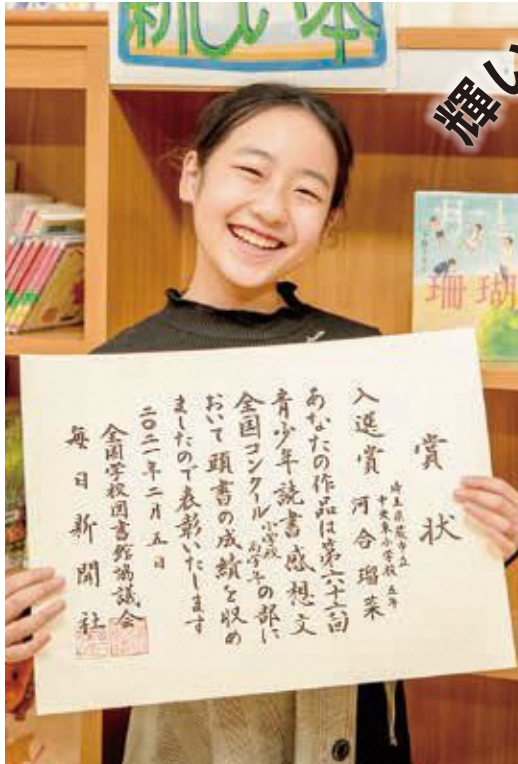 新しい本
輝い
珊瑚
賞状
埼玉県蕨市立
中央東小学校 五年
入選賞 河合瑠菜
あなたの作品は第六十六回
青少年読書感想文
全国コンクール小学校高学年の部に
おいて頭書の成績を収め
ましたので表彰いたします
二〇二一年二月五日
全国学校図書館協議会
毎日新聞社